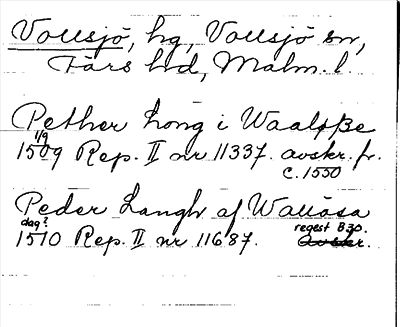 Vollsjö, hg, Vollsjö sn,
Färs hd, Malm. l
Pether Long i Waalsße
1/9
1509 Rep. II nr 11337. avskr. fr.
c. 1550
Peder Langh af Wallösa
dag? regest B30.
1510 Rep. II nr 11687. Avskr.